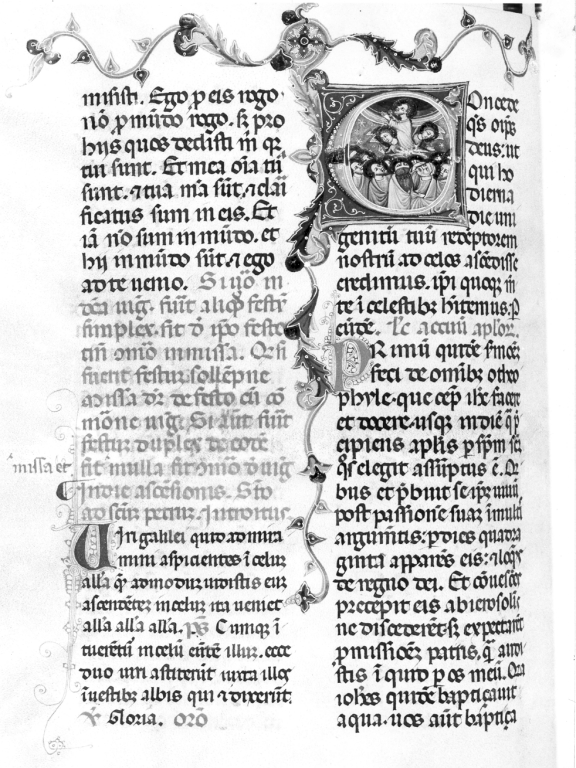 misisti. Ego p eis rogo
nō p mūdo rogo. sꝫ pro
hiis quos dedisti m qꝛ
tui sunt. Et mea oīa tu
sunt. ⁊ tua m̄a sūt. ⁊ clari
ficatus sum in eis. Et
iā nō sum in mūdo. et
hii in mūdo sūt. ⁊ ego
ad te uenio. Si ī
uig. fuīt aliqḋ festū
simplex. fit ꝺ ip̄o festo
missa. Qḋ si
fuerit festū sollempne
missa dꝛ de festo cū cō
mōne uig. Si aūt fūit
festū duplex
fit nulla fit mō ꝺ uig
missa et
In die ascensionis. Stō
ad scm̄ petrū. Introitus.
Uiri galilei quid admira
mini aspicientes ī celuꝫ
alla q̄ admoduꝫ uidistis eū
ascendēteꝫ in celuꝫ ita ueniet
alla alla alla. ps̄ Cumqꝫ ī
tuerētur in celū eūtē illuꝫ. ecce
duo uiri astiterūt iuxta illos
ī uestibꝫ albis qui ⁊ dixerūt.
℣ Gloria. Orō
Oncede
q̄s oīps
deus: ut
qui ho
dierna
die uni
genitū tuū redeptorem
nostrū ad celos ascēdisse
credimus. ip̄i quoqꝫ mē
te ī celestibꝫ hītemus. P
eūdē. Lc̄ actuū aplōꝝ.
PRimū quidē sermōeꝫ
feci de omībꝫ o theo
phyle. que cep̄ ihc̄ facere
et docere. usqꝫ in diē q̄ p̄
cipiens aplis p sp̄m sc̄ꝫ
q̄s elegit assūptus ē. Qi
bus et p̄buit se ip̄ꝫ uiuū
post passionē suaꝫ ī multis
argumētis. p dies quadra
ginta apparēs eis: ⁊ loqēs
de regno dei. Et cōuescēs
precepit eis ab ierosolī
ne discederēt. sꝫ expectarēt
p̄missionē patris. quā audi
stis ī quid p os meū. Qa
ioh̄es quidē baptiçauit
aqua. uos aūt baptiça